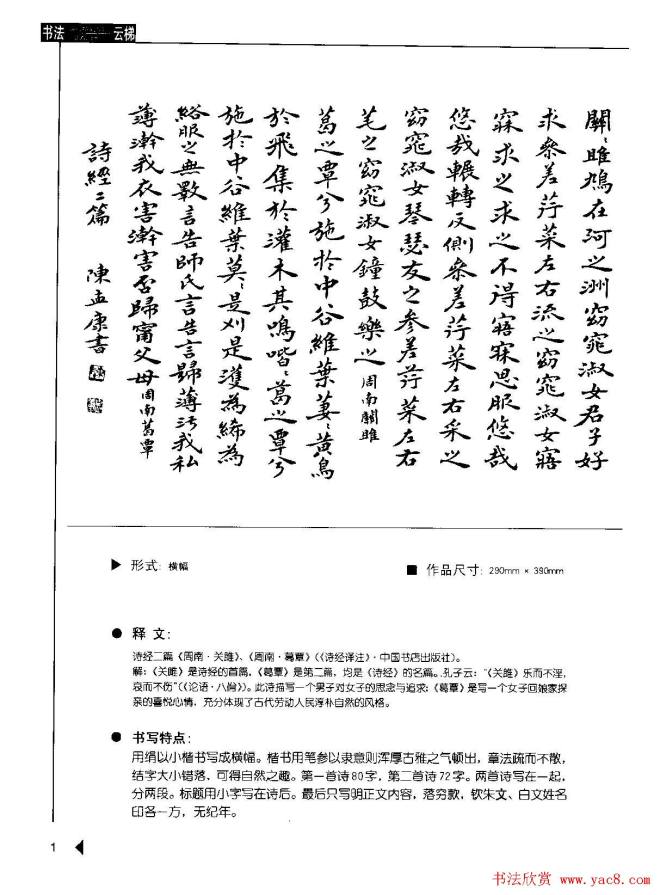 书法 云梯
關〻雎鳩在河之洲窈窕淑女君子好
求參差荇菜左右流之窈窕淑女寤
寐求之求之不得寤寐思服悠哉
悠哉輾轉反側參差荇菜左右采之
窈窕淑女琴瑟友之參差荇菜左右
芼之窈窕淑女鐘鼓樂之周南關雎
葛之覃兮施於中谷維葉萋〻黃鳥
於飛集於灌木其鳴喈〻葛之覃兮
施於中谷維葉莫〻是刈是濩為絺為
綌服之無斁言告師氏言告言歸薄污我私
薄澣我衣害澣害否歸甯父母周南葛覃
詩經二篇 陳孟康書
▶ 形式: 横幅
■ 作品尺寸: 290mm × 390mm
● 释 文:
诗经二篇《周南·关雎》、《周南·葛覃》(《诗经译注》·中国书店出版社)。
解:《关雎》是诗经的首篇,《葛覃》是第二篇，均是《诗经》的名篇。孔子云:“《关雎》乐而不淫,
哀而不伤”(《论语·八佾》)。此诗描写一个男子对女子的思念与追求;《葛覃》是写一个女子回娘家探
亲的喜悦心情，充分体现了古代劳动人民淳朴自然的风格。
● 书写特点:
用绢以小楷书写成横幅。楷书用笔参以隶意则浑厚古雅之气顿出，章法疏而不散，
结字大小错落，可得自然之趣。第一首诗80字，第二首诗72字。两首诗写在一起，
分两段。标题用小字写在诗后。最后只写明正文内容，落穷款，钦朱文、白文姓名
印各一方，无纪年。
1
书法欣赏 www.yac8.com